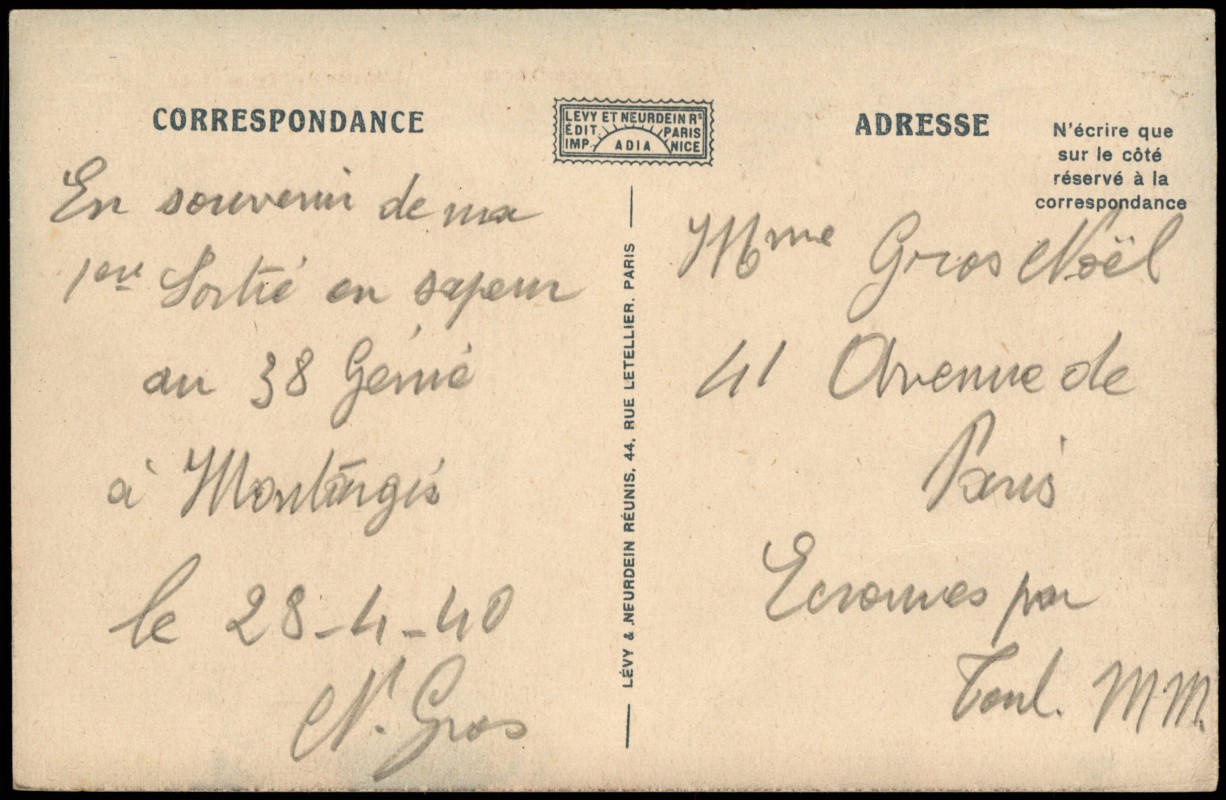 CORRESPONDANCE
LEVY ET NEURDEIN Rˢ
ÉDIT. PARIS
IMP. ADIA NICE
ADRESSE
N'écrire que
sur le côté
réservé à la
correspondance
En souvenir de ma
1ere Sortié en sapeur
au 38 Génié
à Montargis
le 28-4-40
N. Gros
LÉVY & NEURDEIN RÉUNIS, 44, RUE LETELLIER, PARIS
Mme Gros Noël
41 Avenue de
Paris
Ecrouves par
Toul. M M.